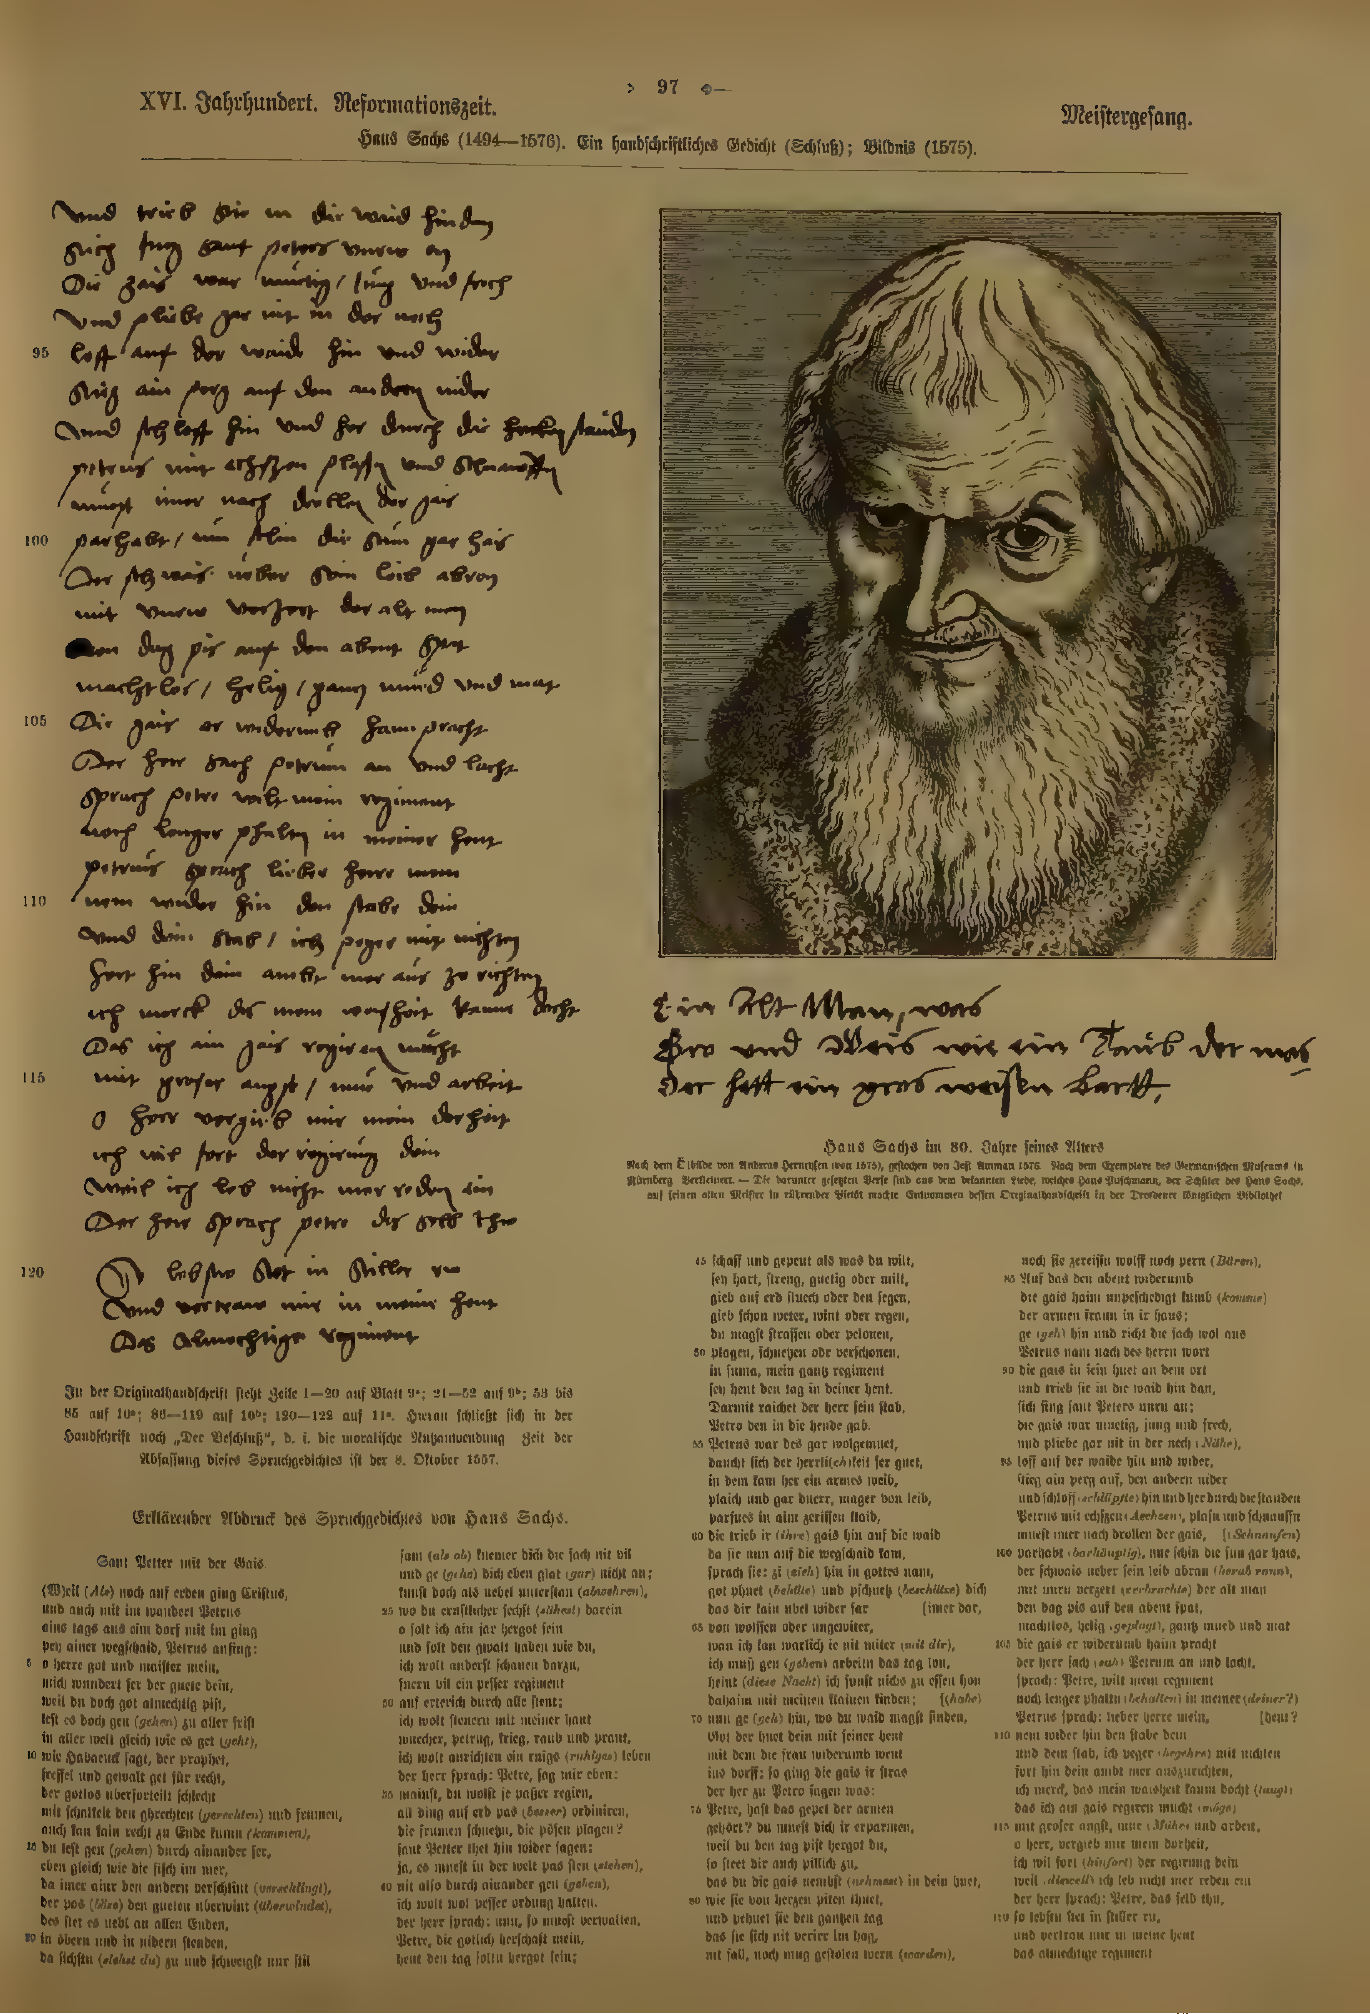 97
XVI. Jahrhundert. Reformationszeit.
Meistergesang.
Hans Sachs (1494—1576). Ein handschriftliches Gedicht (Schluß); Bildnis (1575).
Vnd trieb sie in die waid hin dan
Sich fing sant peters vnrw an
Die gais war müetig / jung vnd frech
Vnd pliebe gar nit in der nech
95 loff auf der waide hin vnd wider
stieg ain perg auf den andern nider
Vnd schloff hin vnd her durch die stauden
petrus mit echszen plasen vnd schnauffen
muest imer nach drollen der gais
100 parhabt / nun schin die sun gar hais
Der schwais ueber sein leib abron
mit vnrw verzert der alt man
den dag pis auf den abent spat
machtlos / helig / gancz mued vnd mat
105 Die gais er widerumb haim pracht
Der herr sach petrum an vnd lacht
sprach peter wilt mein regiment
noch lenger phalten in meiner hent
petrus sprach lieber herre mein
110 nem wider hin den stabe dein
Vnd dein stab / ich peger mit nichten
fort hin dein ambt mer aus zv richten
ich merck das mein weisheit kaum docht
Das ich ain gais regiren mocht
115 mit groser angst / mue vnd arbeit
o herr vergieb mir mein dorheit
ich wil fort der regirung dein
Weil ich leb nicht mer reden ein
Der herr sprach petre das selb thw
120 So lebstw stet in stiller rw
Vnd vertraw mir in meine hent
Das almechtige regiment
Ein Alt Man, was
Gro und Weis wie ein Taub der was
Der hett ein gros weisen bartt,
Hans Sachs im 80. Jahre seines Alters
Nach dem Ölbilde von Andreas Herneysen (von 1575), gestochen von Jost Amman 1576. Nach dem Exemplare des Germanischen Museums in
Nürnberg. Verkleinert. — Die darunter gesetzten Verse sind aus dem bekannten Liede, welches Hans Puschmann, der Schüler des Hans Sachs,
auf seinen alten Meister in rührender Pietät machte. Entnommen dessen Originalhandschrift in der Dresdener Königlichen Bibliothek
In der Originalhandschrift steht Zeile 1—20 auf Blatt 9ᵃ; 21—52 auf 9ᵇ; 53 bis
85 auf 10ᵃ; 86—119 auf 10ᵇ; 120—122 auf 11ᵃ. Hieran schließt sich in der
Handschrift noch „Der Beschluß“, d. i. die moralische Nutzanwendung. Zeit der
Abfassung dieses Spruchgedichtes ist der 8. Oktober 1557.
Erklärender Abdruck des Spruchgedichtes von Hans Sachs.
Sant Petter mit der Gais.
(W)eil (Als) noch auf erden ging Cristus,
und auch mit im wandert Petrus
eins tags aus eim dorf mit im ging
pey ainer wegschaid, Petrus anfing:
5 o herre got und maister mein,
mich wundert ser der guete dein,
weil du doch got almechtig pist,
lest es doch gen (gehen) zu aller frist
in aller welt gleich wie es get (geht),
10 wie Habacuck sagt, der prophet,
freffel und gewalt get für recht,
der gotlos uberforteilt schlecht
mit schalkeit den ghrechten (gerechten) und frumen,
auch kan kain recht zu Ende kumn (kommen),
15 du lest gen (gehen) durch ainander ser,
eben gleich wie die fisch im mer,
da imer ainr den andern verschlint (verschlingt),
der pos (böse) den gueten uberwint (überwindet),
des stet es uebl an allen Enden,
20 in obern und in nidern stenden,
da sichstu (siehst du) zu und schweigst nur stil
sam (als ob) kuemer dich die sach nit vil
und ge (gehe) dich eben glat (gar) nicht an;
kunst doch als uebel unterstan (abwehren),
25 wo du ernstlicher sechst (sähest) darein
o solt ich ain jar hergot sein
und solt den gwalt haben wie du,
ich wolt anderst schauen darzu,
fuern vil ein pesser regiment
30 auf erterich durch alle stent;
ich wolt steuern mit meiner hant
wuecher, petrug, krieg, raub und prant,
ich wolt anrichten ein ruigs (ruhiges) leben
der herr sprach: Petre, sag mir eben:
35 mainst, du wolst je paßer regien,
all ding auf erd pas (besser) ordiniren,
die frumen schuetzn, die pösen plagen?
sant Petter thet hin wider sagen:
ja, es muest in der welt pas sten (stehen),
40 nit also durch ainander gen (gehen),
ich wolt wol pesser ordung halten.
der herr sprach: nun, so muest verwalten,
Petre, die gotlich herschaft mein,
heut den tag soltu hergot sein;
45 schaff und gepeut als was du wilt,
sey hart, streng, guetig oder milt,
gieb auf erd fluech oder den segen,
gieb schon weter, wint oder regen,
du magst straffen oder pelonen,
50 plagen, schuetzen odr verschonen.
in suma, mein gantz regiment
sey heut den tag in deiner hent.
Darmit raichet der herr sein stab,
Petro den in die hende gab.
55 Petrus war des gar wolgemuet,
daucht sich der herrli(ch)keit ser guet,
in dem kam her ein armes weib,
plaich und gar duerr, mager von leib,
parfues in aim zerissen klaid,
60 die trieb ir (ihre) gais hin auf die waid
da sie nun auf die wegschaid kam,
sprach sie: zi (zieh) hin in gottes nam,
got phuet (behüte) und pschuetz (beschütze) dich
das dir kain ubel wider far [imer dar,
65 von wolffen oder ungewiter,
wan ich kan warlich ie nit miter (mit dir),
ich muß gen (gehen) arbeitn das tag lon,
heint (diese Nacht) ich sunst nichs zu essen hon
dahaim mit meinen klainen kinden; [(habe)
70 nun ge (geh) hin, wo du waid magst finden,
Got der huet dein mit seiner hent
mit dem die frau widerumb went
ins dorff; so ging die gais ir stras
der her zu Petro sagen was:
75 Petre, hast das gepet der armen
gehört? du muest dich ir erparmen,
weil du den tag pist hergot du,
so steet dir auch pillich zu,
das du die gais nembst (nehmest) in dein huet,
80 wie sie von herzen piten thuet,
und pehuet sie den gantzen tag
das sie sich nit verirr im hag,
nit fall, noch mug gestolen wern (werden),
noch sie zereissn wolff noch pern (Bären),
85 Auf das den abent widerumb
die gais haim unpeschedigt kumb (komme)
der armen frauen in ir haus;
ge (geh) hin und richt die sach wol aus
Petrus nam nach des herrn wort
90 die gais in sein huet an dem ort
und trieb sie in die waid hin dan,
sich fing sant Peters unru an;
die gais war muetig, jung und frech,
und pliebe gar nit in der nech (Nähe),
95 loff auf der waide hin und wider,
stieg ain perg auf, den andern nider
und schloff (schlüpfte) hin und her durch die stauden
Petrus mit echszen (Aechzen), plasn und schnauffn
muest imer nach drollen der gais, [(Schnaufen)
100 parhabt (barhäuptig), nue schin die sun gar hais,
der schwais ueber sein leib abran (herab rann),
mit unru verzert (verbrachte) der alt man
den dag pis auf den abent spat,
machtlos, helig (geplagt), gantz mued und mat
105 die gais er widerumb haim pracht
der herr sach (sah) Petrum an und lacht,
sprach: Petre, wilt mein regiment
noch lenger phaltn (behalten) in meiner (deiner?)
Petrus sprach: lieber herre mein, [hent?
110 nem wider hin den stabe dein
und dein stab, ich peger (begehre) mit nichten
fort hin dein ambt mer auszurichten,
ich merck, das mein waisheit kaum docht (taugt)
das ich ain gais regiren mücht (möge)
115 mit groser angst, mue (Mühe) und arbeit,
o herr, vergieb mir mein dorheit,
ich wil fort (hinfort) der regirung dein
weil (dieweil) ich leb nicht mer reden ein
der herr sprach: Petre, das selb thu,
120 so lebstu stet in stiller ru,
und vertrau mir in meine hent
das almechtige regiment